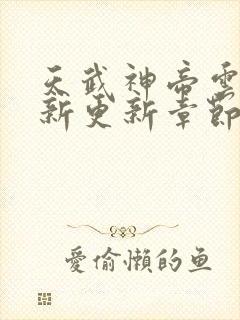 天武神帝雲
新更新章節
愛偷懶的鱼